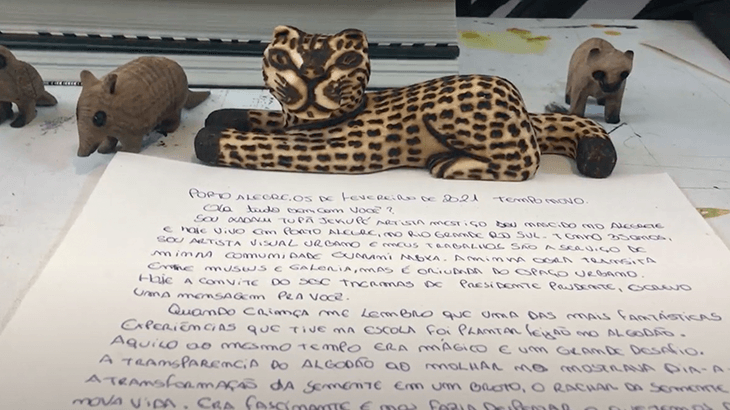 PORTO ALEGRE, 05 DE FEVEREIRO DE 2021 TEMPO NOVO.
Olá tudo bem com você?
SOU XADALU TUPÃ JEKUPÉ ARTISTA MESTIÇO SOU NASCIDO NO ALEGRETE
E HOJE VIVO EM PORTO ALEGRE, NO RIO GRANDE DO SUL. TENHO 35 ANOS,
SOU ARTISTA VISUAL URBANO E MEUS TRABALHOS SÃO A SERVIÇO DE
MINHA COMUNIDADE GUARANI MBYA. A MINHA OBRA TRANSITA
ENTRE MUSEUS E GALERIA, MAS É ORIUNDA DO ESPAÇO URBANO.
HOJE A CONVITE DO SESC THERMAS DE PRESIDENTE PRUDENTE, ESCREVO
UMA MENSAGEM PRA VOCÊ.
QUANDO CRIANÇA ME LEMBRO QUE UMA DAS MAIS FANTÁSTICAS
EXPERIÊNCIAS QUE TIVE NA ESCOLA FOI PLANTAR FEIJÃO NO ALGODÃO.
AQUILO AO MESMO TEMPO ERA MÁGICO E UM GRANDE DESAFIO.
A TRANSPARENCIA DO ALGODÃO AO MOLHAR ME MOSTRAVA DIA-A-
A TRANSFORMAÇÃO DA SEMENTE EM UM BROTO, O RACHAR DA SEMENTE
NOVA VIDA. ERA FASCINANTE E